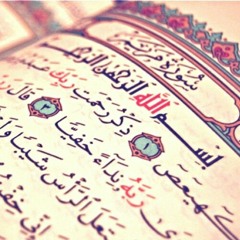 سُورَةُ مَرْيَمَ
بِسْمِ اللَّهِ الرَّحْمَٰنِ الرَّحِيمِ
كهيعص ١ ذِكْرُ رَحْمَتِ رَبِّكَ
رَبَّهُ نِدَاءً خَفِيًّا ٣ قَالَ رَبِّ
الرَّأْسُ شَيْبًا